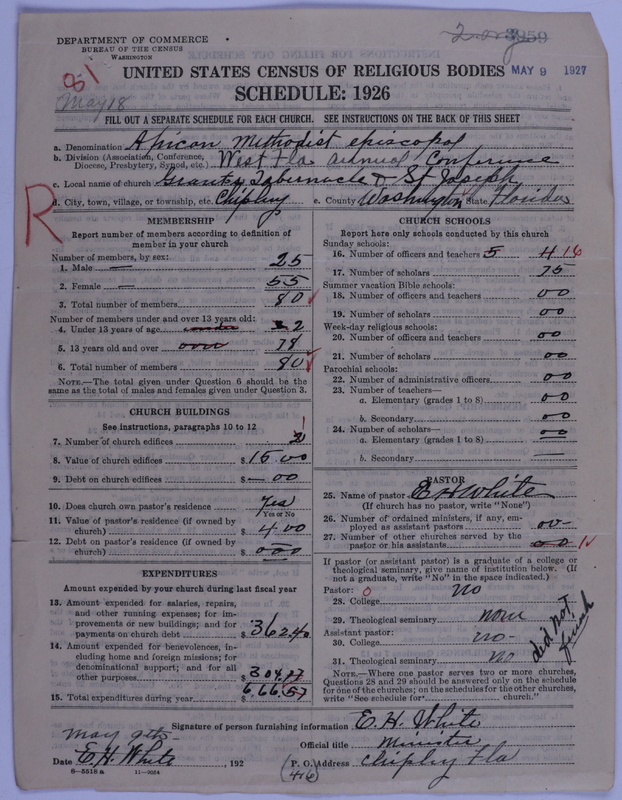 2 org 3959
DEPARTMENT OF COMMERCE
BUREAU OF THE CENSUS
WASHINGTON
81
May 18
UNITED STATES CENSUS OF RELIGIOUS BODIES MAY 9 1927
SCHEDULE: 1926
FILL OUT A SEPARATE SCHEDULE FOR EACH CHURCH. SEE INSTRUCTIONS ON THE BACK OF THIS SHEET
R
a. Denomination African Methodist episcopal
b. Division (Association, Conference, Diocese, Presbytery, Synod, etc.) West Fla annual Conference
c. Local name of church Grants Tabernacle & St Joseph
d. City, town, village, or township, etc. Chipley e. County Washington State Florida
MEMBERSHIP
Report number of members according to definition of
member in your church
Number of members, by sex:
1. Male 25
2. Female 55
3. Total number of members 80
Number of members under and over 13 years old:
4. Under 13 years of age under 2
5. 13 years old and over over 78
6. Total number of members 80
NOTE.—The total given under Question 6 should be the
same as the total of males and females given under Question 3.
CHURCH BUILDINGS
See instructions, paragraphs 10 to 12
7. Number of church edifices 2 1
8. Value of church edifices $ 15.00
9. Debt on church edifices $ — 00
10. Does church own pastor's residence yes
Yes or No
11. Value of pastor's residence (if owned by
church) $ 400
12. Debt on pastor's residence (if owned by
church) $ 000
EXPENDITURES
Amount expended by your church during last fiscal year
13. Amount expended for salaries, repairs,
and other running expenses; for im-
provements or new buildings; and for
payments on church debt $ 362.40
14. Amount expended for benevolences, in-
cluding home and foreign missions; for
denominational support; and for all
other purposes $ 304.17
15. Total expenditures during year $ 666.57
CHURCH SCHOOLS
Report here only schools conducted by this church
Sunday schools:
16. Number of officers and teachers 5 4 16
17. Number of scholars 75
Summer vacation Bible schools:
18. Number of officers and teachers 00
19. Number of scholars 00
Week-day religious schools:
20. Number of officers and teachers 00
21. Number of scholars 00
Parochial schools:
22. Number of administrative officers 00
23. Number of teachers—
a. Elementary (grades 1 to 8) 00
b. Secondary 00
24. Number of scholars—
a. Elementary (grades 1 to 8) 00
b. Secondary —
PASTOR
25. Name of pastor E H White
(If church has no pastor, write "None")
26. Number of ordained ministers, if any, em-
ployed as assistant pastors 00-
27. Number of other churches served by the
pastor or his assistants 00
If pastor (or assistant pastor) is a graduate of a college or
theological seminary, give name of institution below. (If
not a graduate, write "No" in the space indicated.)
Pastor: 0
28. College no
29. Theological seminary none
Assistant pastor:
30. College no-
31. Theological seminary no
did not finish
NOTE.—Where one pastor serves two or more churches,
Questions 28 and 29 should be answered only on the schedule
for one of the churches; on the schedules for the other churches,
write "See schedule for church."
Signature of person furnishing information E. H. White
Official title minister
may 9th
Date E. H. White, 192 P. O. Address Chipley Fla
8—5518 a 11—9024 (46)